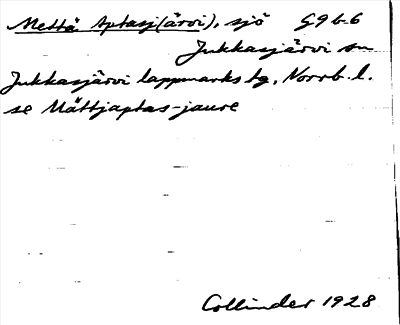 Mettä Aptasj(ärvi), sjö G9 b-6
Jukkasjärvi sn
Jukkasjärvi lappmarks tg, Norrb. l.
se Måttjaptas-jaure
Collinder 1928